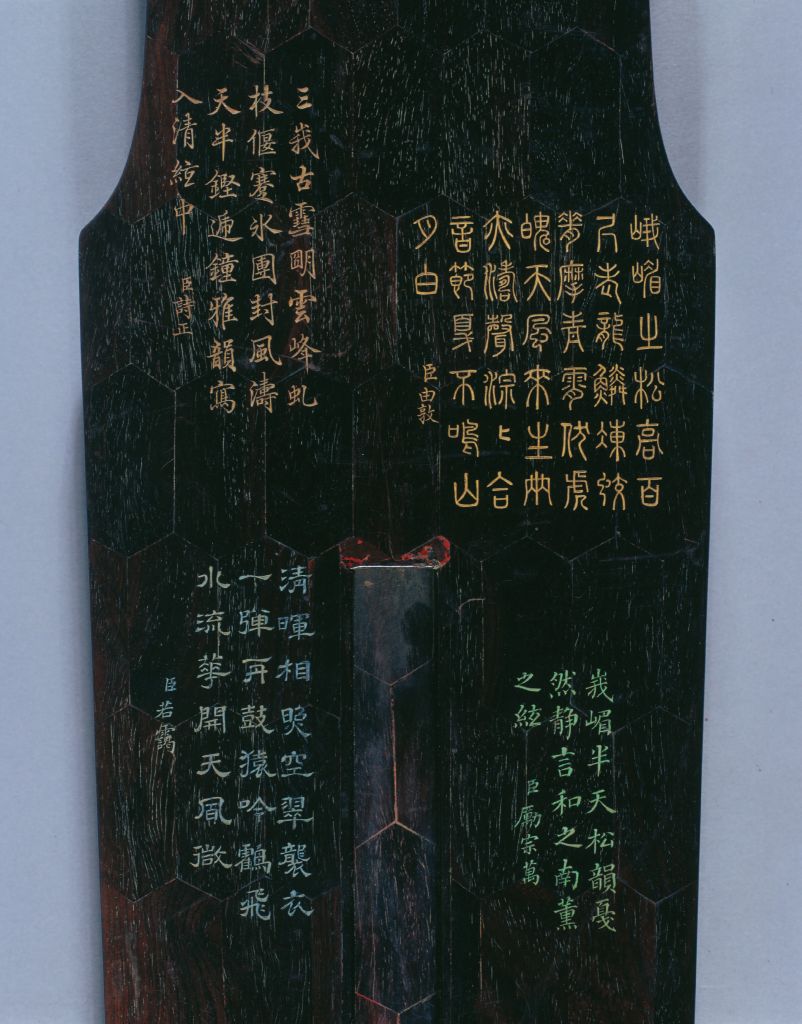 峨嵋之松高百
尺老龍鱗竦
摩青雲伏虎
魄天風來生
濤聲淙〻合
音節戛不鳴山
月白
臣由敦
三峩古雪明雲峰虬
枝偃蹇氷團封風濤
天半鏗遞鐘雅韻寫
入清絃中
臣詩正
峩嵋半天松韻戞
然静言和之南薰
之絃
臣勵宗萬
清暉相映空翠襲衣
一彈再鼓猿吟鶴飛
水流華開天風微
臣若靄